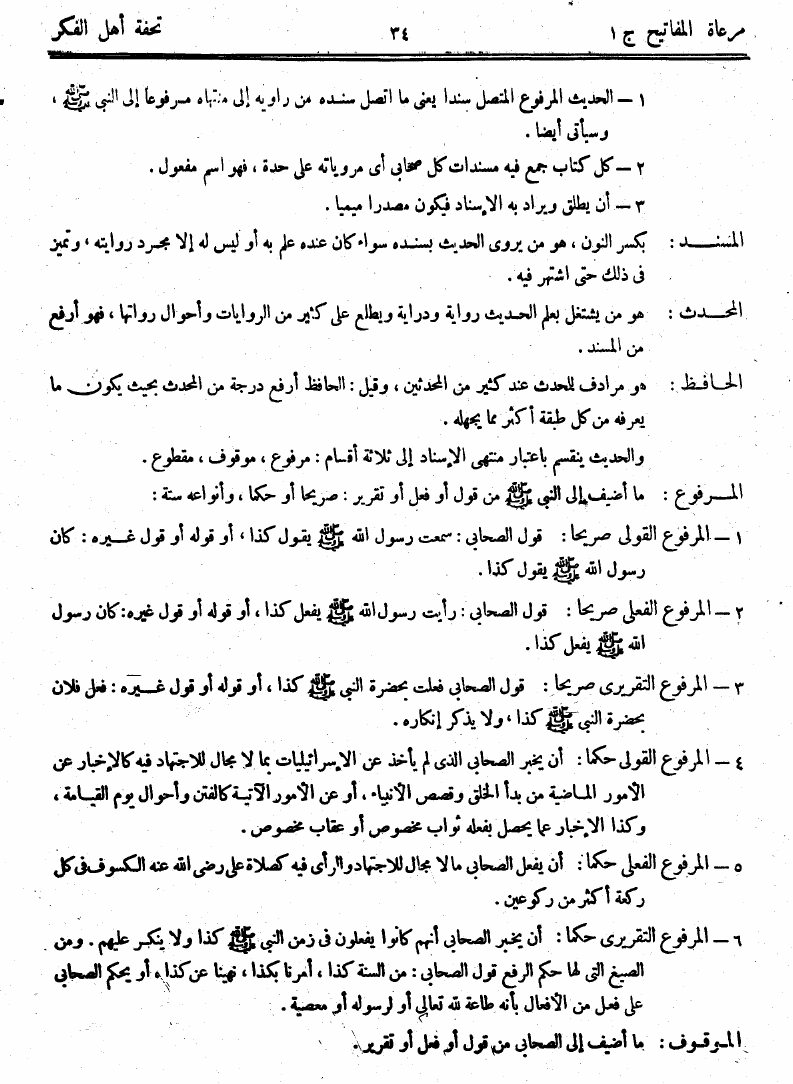 مرعاة المفاتيح ج ١ ٣٤ تحفة أهل الفكر
١ – الحديث المرفوع المتصل سندا يعنى ما اتصل سنده من راويه إلى منتهاه مرفوعا إلى النبى ﷺ ،
وسيأتى أيضا .
٢ – كل كتاب جمع فيه مسندات كل صحابى أى مروياته على حدة ، فهو اسم مفعول .
٣ – أن يطلق ويراد به الإسناد فيكون مصدرا ميميا .
المسنــد : بكسر النون ، هو من يروى الحديث بسنده سواء كان عنده علم به أو ليس له إلا مجرد روايته ، وتميز
فى ذلك حتى اشتهر فيه .
المحـدث : هو من يشتغل بعلم الحديث رواية ودراية ويطلع على كثير من الروايات وأحوال رواتها ، فهو أرفع
من المسند .
الحافـظ : هو مرادف للمحدث عند كثير من المحدثين ، وقيل : الحافظ أرفع درجة من المحدث بحيث يكون ما
يعرفه من كل طبقة أكثر مما يجهله .
والحديث ينقسم باعتبار منتهى الإسناد إلى ثلاثة أقسام : مرفوع ، موقوف ، مقطوع .
المـرفوع : ما أضيف إلى النبى ﷺ من قول أو فعل أو تقرير : صريحا أو حكما ، وأنواعه ستة :
١ – المرفوع القولى صريحا : قول الصحابى : سمعت رسول الله ﷺ يقول كذا ، أو قوله أو قول غيره : كان
رسول الله ﷺ يقول كذا .
٢ – المرفوع الفعلى صريحا : قول الصحابى : رأيت رسول الله ﷺ يفعل كذا ، أو قوله أو قول غيره : كان رسول
الله ﷺ يفعل كذا .
٣ – المرفوع التقريرى صريحا : قول الصحابى فعلت بحضرة النبى ﷺ كذا ، أو قوله أو قول غيره : فعل فلان
بحضرة النبى ﷺ كذا ، ولا يذكر إنكاره .
٤ – المرفوع القولى حكما : أن يخبر الصحابى الذى لم يأخذ عن الإسرائيليات بما لا مجال للاجتهاد فيه كالإخبار عن
الأمور الماضية من بدأ الخلق وقصص الأنبياء ، أو عن الأمور الآتية كالفتن وأحوال يوم القيامة ،
وكذا الإخبار عما يحصل بفعله ثواب مخصوص أو عقاب مخصوص .
٥ – المرفوع الفعلى حكما : أن يفعل الصحابى ما لا مجال للاجتهاد والرأى فيه كصلاة على رضى الله عنه الكسوف فى كل
ركعة أكثر من ركوعين .
٦ – المرفوع التقريرى حكما : أن يخبر الصحابى أنهم كانوا يفعلون فى زمن النبى ﷺ كذا ولا ينكر عليهم . ومن
الصيغ التى لها حكم الرفع قول الصحابى : من السنة كذا ، أمرنا بكذا ، نهينا عن كذا ، أو يحكم الصحابى
على فعل من الأفعال بأنه طاعة لله تعالى أو لرسوله أو معصية .
المـوقـوف : ما أضيف إلى الصحابى من قول أو فعل أو تقرير .